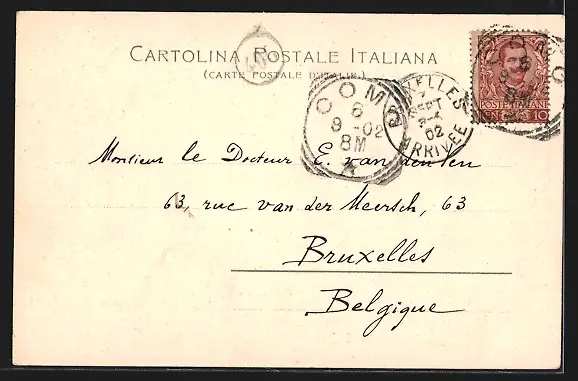 CARTOLINA POSTALE ITALIANA
(CARTE POSTALE D'ITALIE)
COMO
6
9-02
8M
BRUXELLES
7
SEPT
02
ARRIVEE
POSTE ITALIANE
CEN 10
Monsieur le Docteur E. van
63, rue van der Meersch, 63
Bruxelles
Belgique